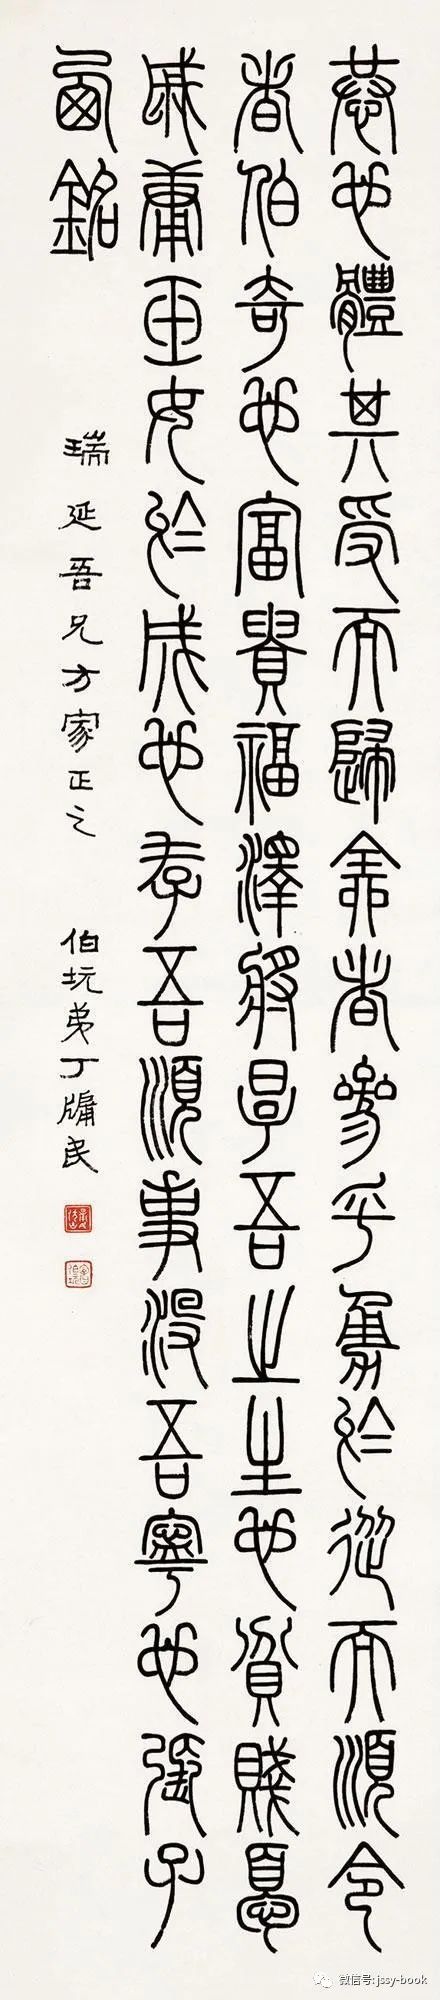 恭也體其受而歸全者參乎勇於從而順令
者伯奇也富貴福澤將厚吾之生也貧賤憂
戚庸玉女於成也存吾順事沒吾寧也張子
西銘
瑞延吾兄方家正之 伯玩弟丁牖民
微信号:jssy-book